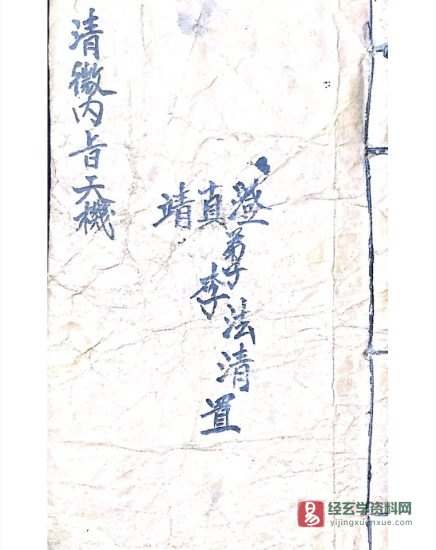 澄真靖
弟子李法清置
清微内旨天機
易
经玄学资料网
yijingxuanxue.com